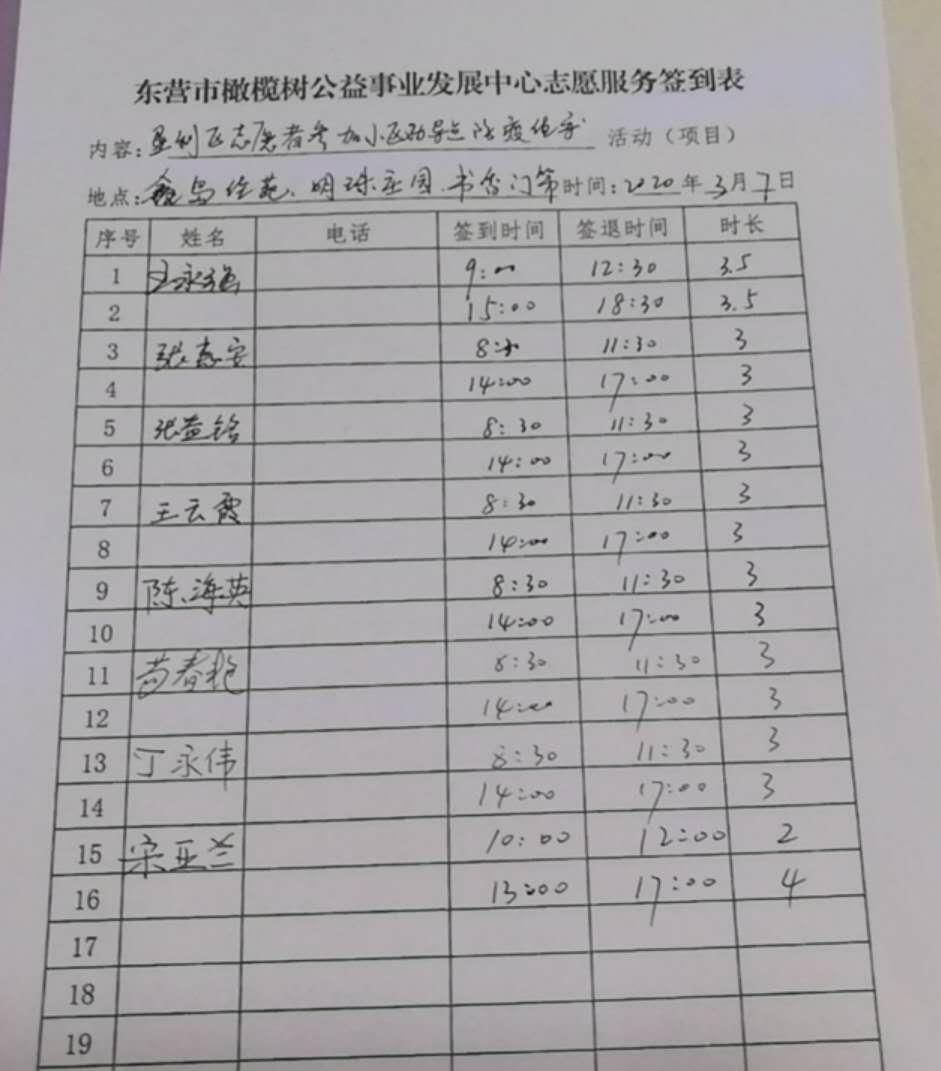 东营市橄榄树公益事业发展中心志愿服务签到表
内容：垦利区志愿者参加小区劝导点防疫值守 活动（项目）
地点：鑫岛佳苑、明珠庄园、书香门第 时间：2020年3月7日
序号 姓名 电话 签到时间 签退时间 时长
1 王永强 9:00 12:30 3.5
2 15:00 18:30 3.5
3 张安 8:30 11:30 3
4 14:00 17:00 3
5 张益铭 8:30 11:30 3
6 14:00 17:00 3
7 王云霞 8:30 11:30 3
8 14:00 17:00 3
9 陈海英 8:30 11:30 3
10 14:00 17:00 3
11 苗春艳 8:30 11:30 3
12 14:00 17:00 3
13 丁永伟 8:30 11:30 3
14 14:00 17:00 3
15 宋亚兰 10:00 12:00 2
16 13:00 17:00 4
17
18
19